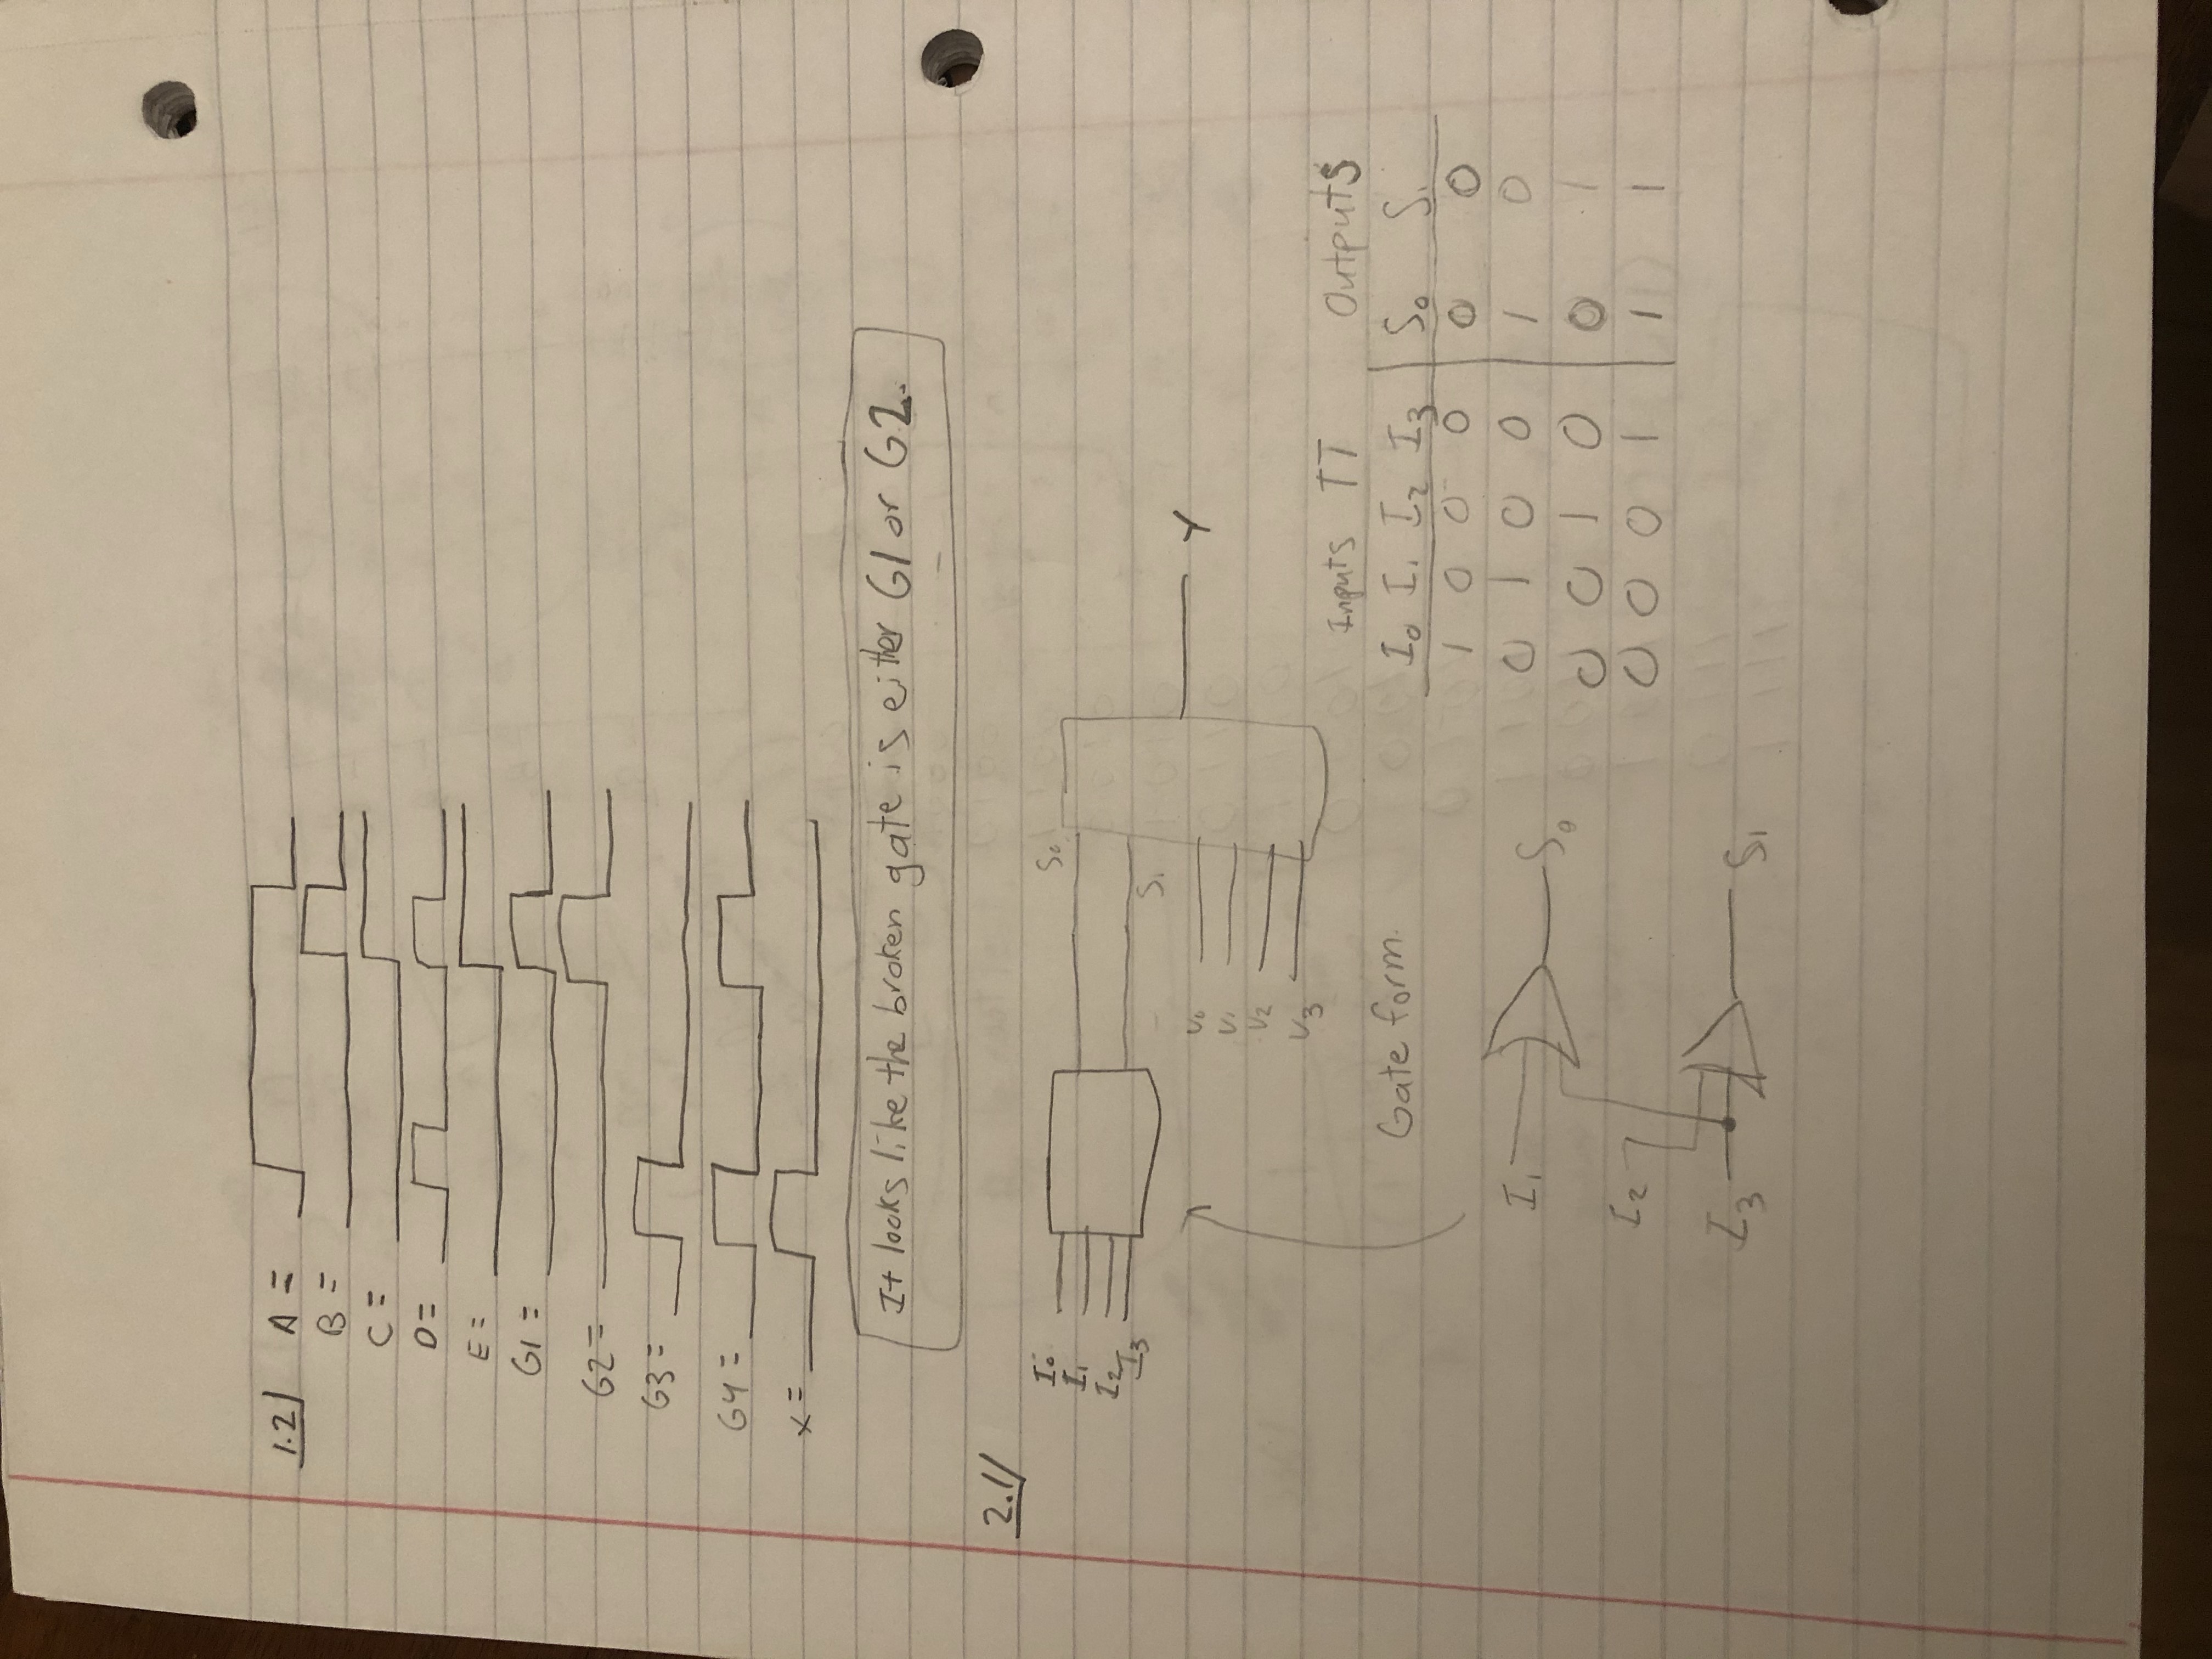 1.2/ A =
B =
C =
D =
E =
G1 =
G2 =
G3 =
G4 =
x =
It looks like the broken gate is either G1 or G2.
2.1/
I₀
I₁
I₂
I₃
S₀
S₁
V₀
V₁
V₂
V₃
Y
Gate form.
Inputs TT Outputs
I₀ I₁ I₂ I₃ S₀ S₁
1 0 0 0 0 0
0 1 0 0 1 0
0 0 1 0 0 1
0 0 0 1 1 1
I₁ S₀
I₂
I₃ S₁